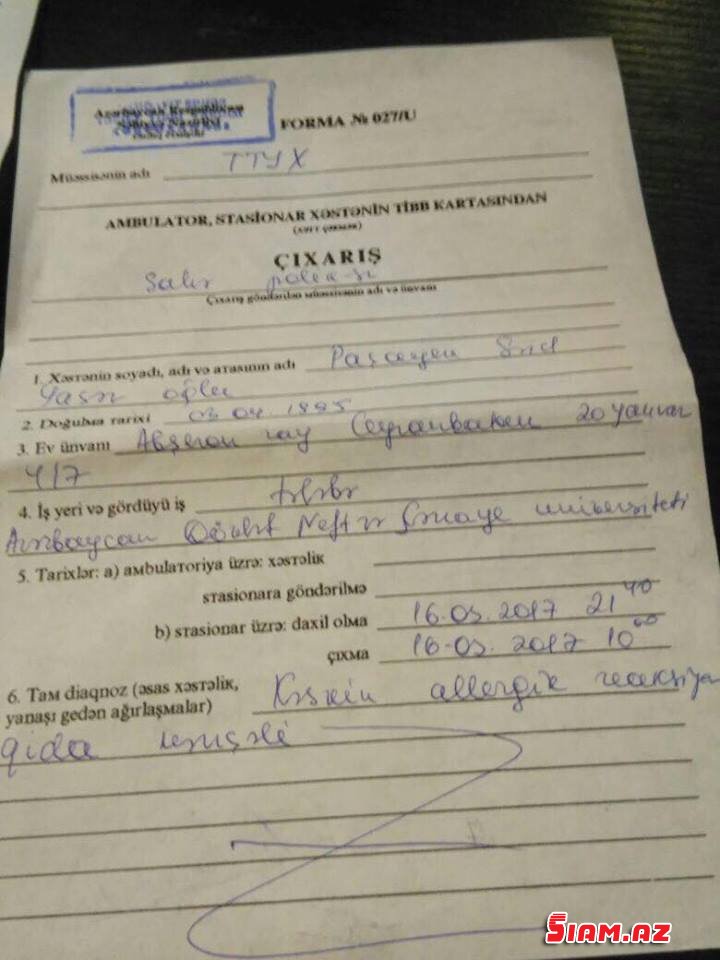 Azərbaycan Respublikası
Səhiyyə Nazirliyi
FORMA № 027/U
Müəssisənin adı TTYX
AMBULATOR, STASİONAR XƏSTƏNİN TİBB KARTASINDAN
ÇIXARIŞ
Çıxarış göndərilən müəssisənin adı və ünvanı
1. Xəstənin soyadı, adı və atasının adı
oğlu
2. Doğulma tarixi 03.04.1995
3. Ev ünvanı Abşeron ray Ceyranbatan 20 yanvar
4/7
4. İş yeri və gördüyü iş tələbə
Azərbaycan Dövlət Neft və Sənaye universiteti
5. Tarixlər: a) ambulatoriya üzrə: xəstəlik
stasionara göndərilmə
b) stasionar üzrə: daxil olma 16.03.2017 21 40
çıxma 16.03.2017 10 00
6. Tam diaqnoz (əsas xəstəlik, Kəskin allergik reaksiya
yanaşı gedən ağırlaşmalar)
qida mənşəli
SIAM.AZ